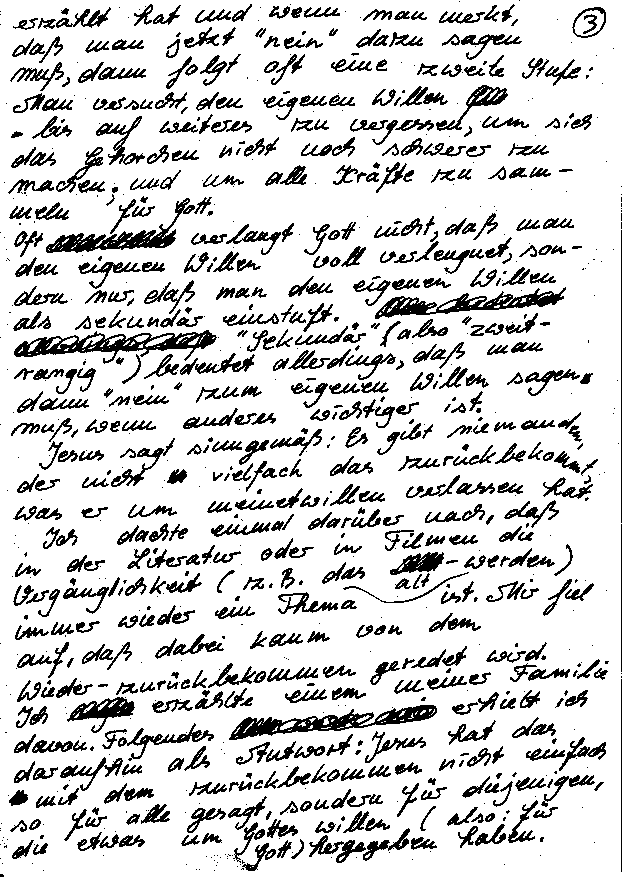 erzählt hat und wenn man merkt, ③
daß man jetzt "nein" dazu sagen
muß, dann folgt oft eine zweite Stufe:
Man versucht, den eigenen Willen
- bis auf weiteres zu vergessen, um sich
das Gehorchen nicht noch schwerer zu
machen, und um alle Kräfte zu sam-
meln für Gott.
Oft verlangt Gott nicht, daß man
den eigenen Willen voll verleugnet, son-
dern nur, daß man den eigenen Willen
als sekundär einstuft.
"Sekundär" (also "zweit-
rangig") bedeutet allerdings, daß man
dann "nein" zum eigenen Willen sagen
muß, wenn anderes wichtiger ist.
Jesus sagt sinngemäß: Es gibt niemanden,
der nicht vielfach das zurückbekommt,
was er um meinetwillen verlassen hat.
Ich dachte einmal darüber nach, daß
in der Literatur oder in Filmen die
Vergänglichkeit (z.B. das alt-werden)
immer wieder ein Thema ist. Mir fiel
auf, daß dabei kaum von dem
Wieder-zurückbekommen geredet wird.
Ich erzählte einem meiner Familie
davon. Folgendes erhielt ich
daraufhin als Antwort: Jesus hat das
mit dem zurückbekommen nicht einfach
so für alle gesagt, sondern für diejenigen,
die etwas um Gottes willen (also: für
Gott) hergegeben haben.